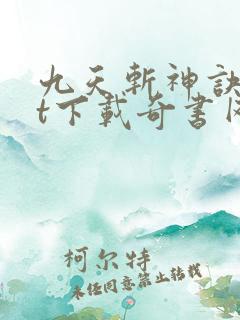 九天斬神訣
t下載奇書
柯尔特
未经同意禁止转载